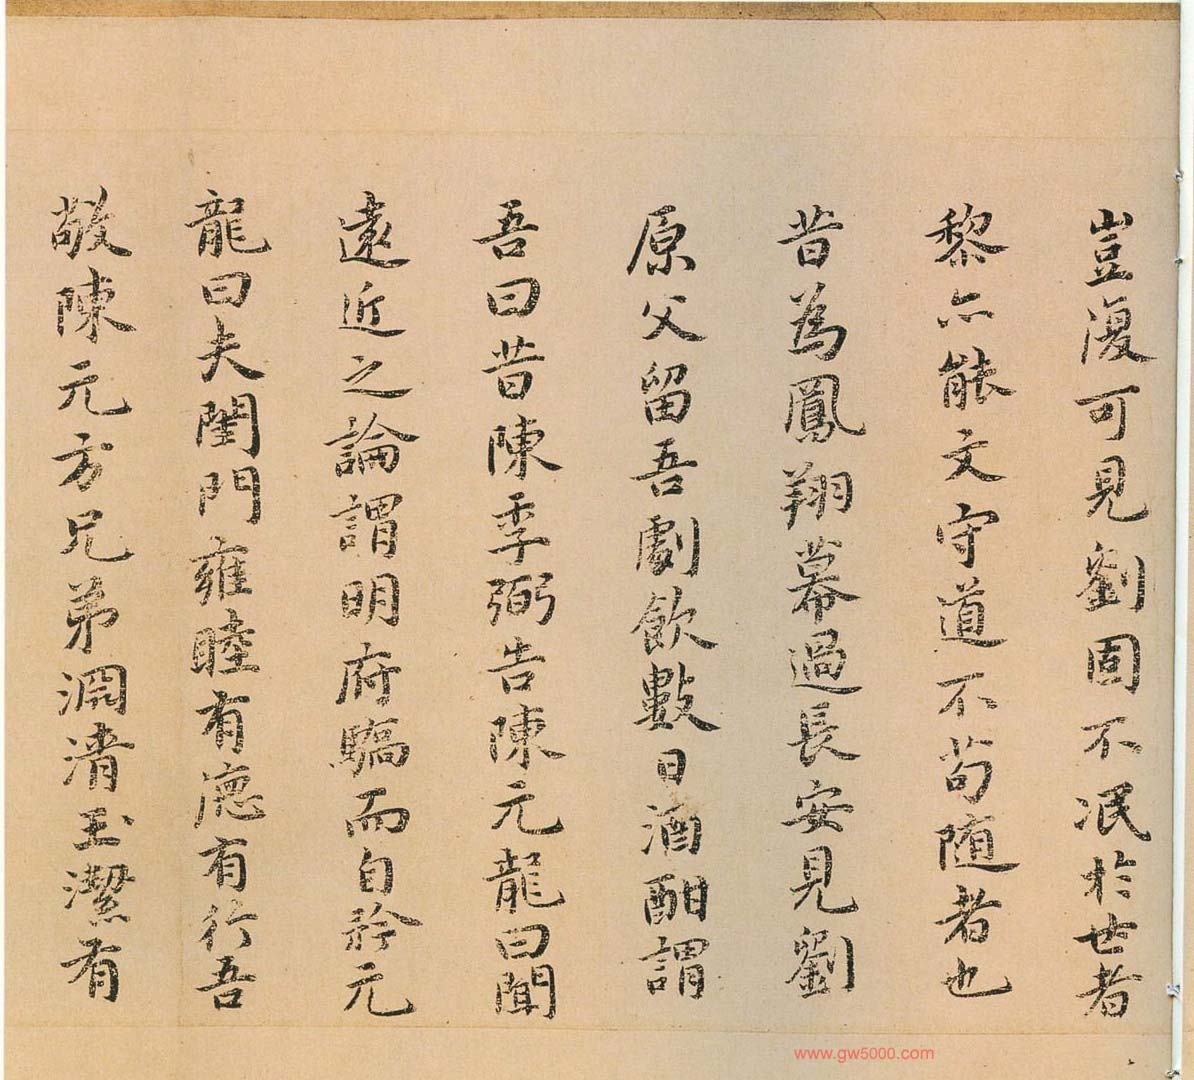 豈復可見劉固不泯於世者
黎亦能文守道不苟随者也
昔為鳳翔幕過長安見劉
原父留吾劇飲數日酒酣謂
吾曰昔陳季弼告陳元龍曰聞
遠近之論謂明府驕而自矜元
龍曰夫閨門雍睦有德有行吾
敬陳元方兄弟淵清玉潔有
www.gw5000.com